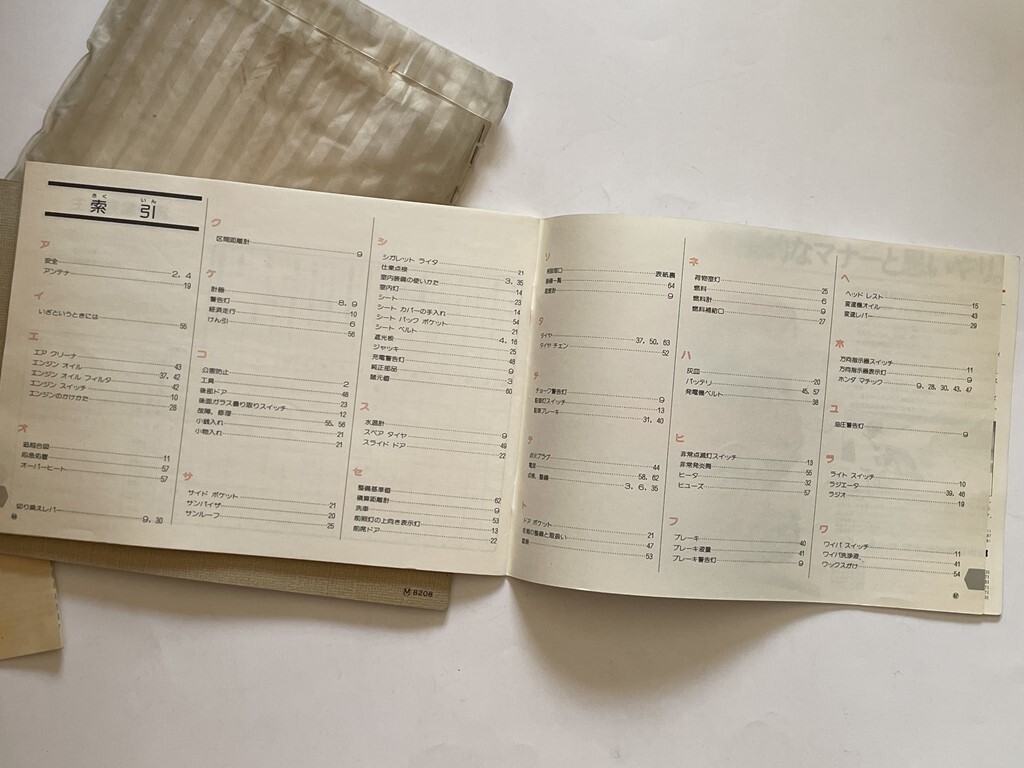 さく いん
索 引
ア
安全 2. 4
アンテナ 19
イ
いざというときには 55
エ
エア クリーナ 43
エンジン オイル 37. 42
エンジン オイル フィルタ 42
エンジン スイッチ 10
エンジンのかけかた 28
オ
応急処置 57
オーバーヒート 57
切り替えレバー 9. 30
ク
区間距離計 9
ケ
計器 8. 9
警告灯 10
経済走行 6
けん引 56
コ
公害防止 2
工具 48
後部ドア 23
後面ガラス曇り取りスイッチ 12
故障、修理 55. 56
小銭入れ 21
小物入れ 21
サ
サイド ポケット 21
サンバイザ 20
サンルーフ 25
シ
シガレット ライタ 21
仕業点検 3. 35
室内装備の使いかた 14
室内灯 23
シート 14
シート カバーの手入れ 54
シート バック ポケット 21
シート ベルト 4. 16
遮光板 25
ジャッキ 48
充電警告灯 9
純正部品 3
諸元値 60
ス
水温計 9
スペア タイヤ 49
スライド ドア 22
セ
整備基準値 62
積算距離計 9
洗車 53
前照灯の上向き表示灯 13
前席ドア 22
M 8208
表紙裏
64
9
タイヤ 37. 50. 63
タイヤ チェン 52
チョーク警告灯 9
駐車灯スイッチ 13
駐車ブレーキ 31. 40
点火プラグ 44
58. 62
点検、整備 3. 6. 35
ト
ドア ポケット 21
47
53
ネ
荷物室灯 25
燃料 6
燃料計 9
燃料補給口 27
ハ
灰皿 20
バッテリ 45. 57
発電機ベルト 38
ヒ
非常点滅灯スイッチ 13
非常発炎筒 55
ヒータ 32
ヒューズ 57
フ
ブレーキ 40
ブレーキ液量 41
ブレーキ警告灯 9
ヘ
ヘッド レスト 15
変速機オイル 43
変速レバー 29
ホ
方向指示器スイッチ 11
方向指示器表示灯 9
ホンダ マチック 9. 28. 30. 43. 47
ユ
油圧警告灯 9
ラ
ライト スイッチ 10
ラジエータ 39. 48
ラジオ 19
ワ
ワイパ スイッチ 11
ワイパ洗浄液 41
ワックスがけ 54